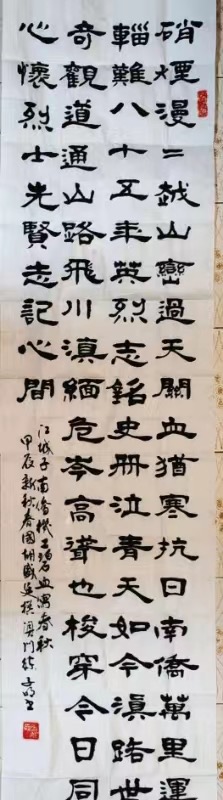 硝煙漫〻越山巒過天關血猶寒抗日南僑萬里運
輜難八十五年英烈志銘史冊泣青天如今滇路世
奇觀道通山路飛川滇緬危岑高聳也梭穿今日同
心懷烈士先賢志記心間
江城子南僑機工碧血寫春秋
甲辰新秋 國胡盛 撰澳門 書